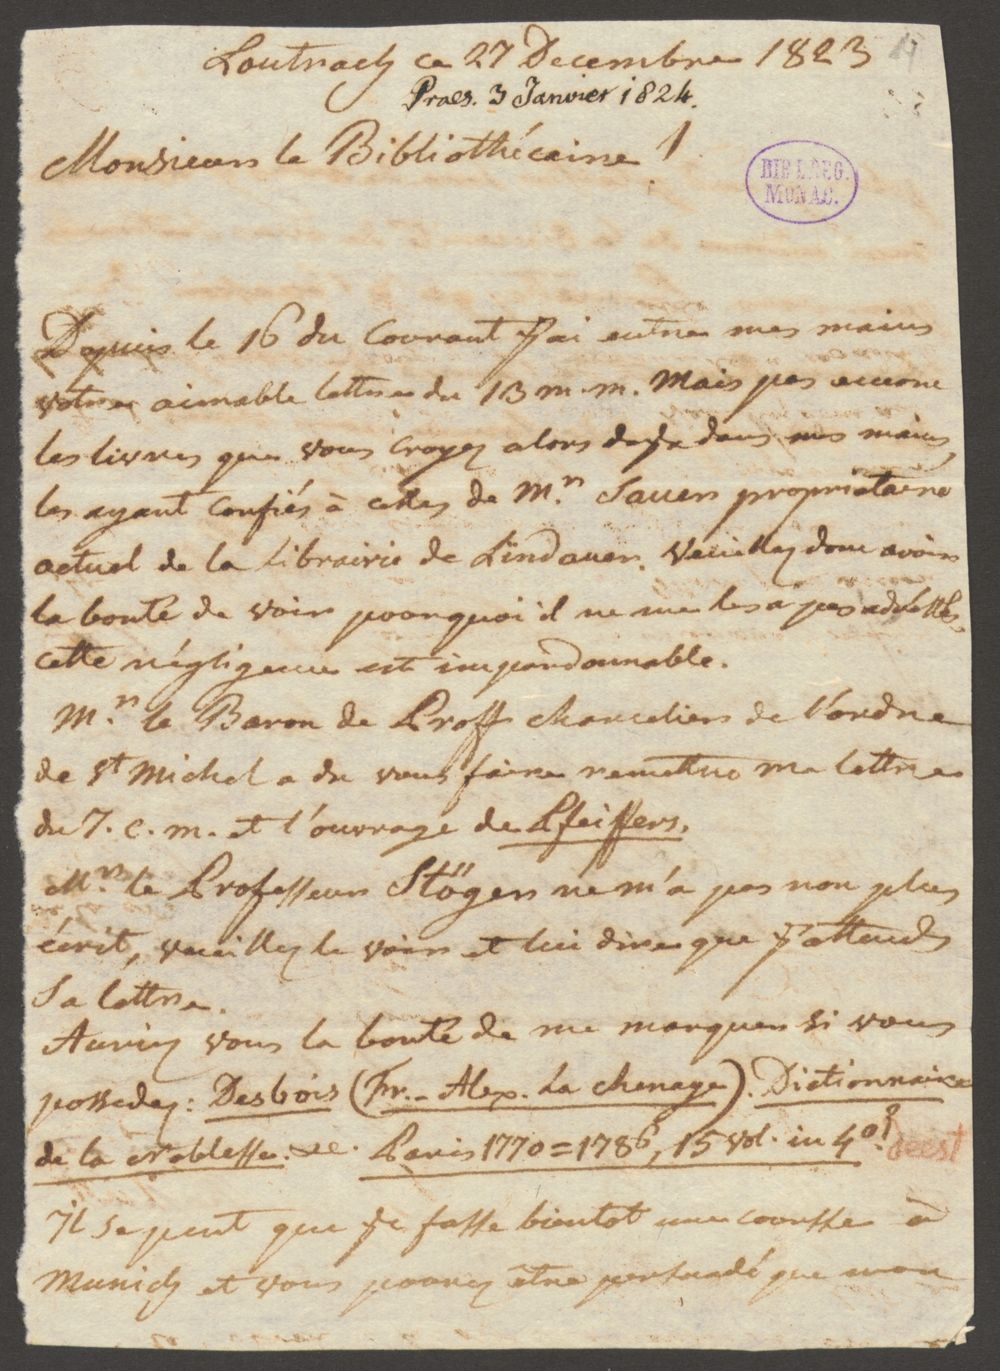 Loutrach ce 27 Decembre 1823
Praes. 3 Janvier 1824.
Monsieur le Bibliothécaire !
BIBL.REG.
MONAC.
Depuis le 16 du Courant j'ai entre mes mains
votre aimable lettre du 13 m. m. Mais pas encore
les livres que vous croyez alors deja dans mes mains,
les ayant confiés à celles de M.r Sauer propriétaire
actuel de la Librairie de Lindauer. Veuillez donc avoir
la bonté de voir pourquoi il ne me les a pas adressés,
cette négligence est impardonnable.
M.r le Baron de Proff chancelier de l'ordre
de St Michel a du vous faire remettre ma lettre
du 7. c. m. et l'ouvrage de Pfeiffer.
M.r le Professeur Stöger ne m'a pas non plus
écrit, veuillez le voir et lui dire que j'attends
Sa lettre.
Auriez vous la bonté de me marquer si vous
possedez: Desbois (Fr. Alex. La chenaye). Dictionnaire
de la Noblesse. &c. Paris 1770=1786, 15 vol. in 4o? deest
Il se peut que je fasse bientot une course à
Munich et vous pourez être persuadé que mon